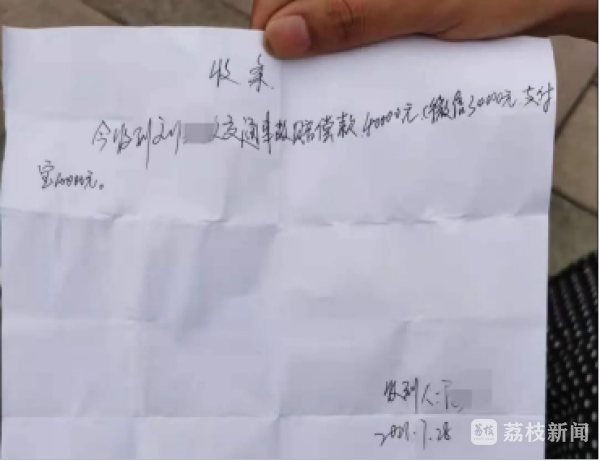 收条
今收到刘 交通事故赔偿款40000元(微信30000元 支付
宝10000元。
收到人:
2021.7.28
荔枝 荔枝新闻